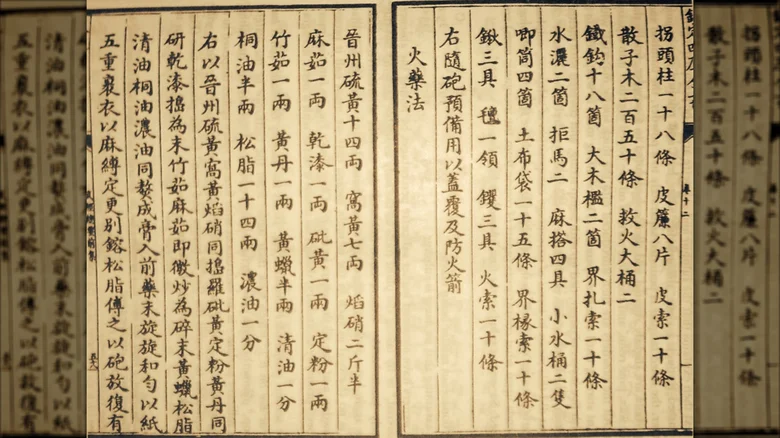 卷十二
拐頭柱一十八條 皮簾八片 皮索一十條
散子木二百五十條 救火大桶二
鐵鉤十八箇 大木檻二箇 界扎索一十條
水濃二箇 拒馬二 麻搭四具 小水桶二隻
唧筒四箇 土布袋一十五條 界椽索一十條
鍬三具 氊一領 钁三具 火索一十條
右隨砲預備用以蓋覆及防火箭
火藥法
晉州硫黃十四兩 窩黃七兩 焰硝二斤半
麻茹一兩 乾漆一兩 砒黃一兩 定粉一兩
竹茹一兩 黃丹一兩 黃蠟半兩 清油一分
桐油半兩 松脂一十四兩 濃油一分
右以晉州硫黃窩黃焰硝同擣羅砒黃定粉黃丹同
研乾漆擣為末竹茹麻茹即微炒為碎末黃蠟松脂
清油桐油濃油同熬成膏入前藥末旋旋和勻以紙
五重裹衣以麻縛定更別鎔松脂傅之以砲放復有